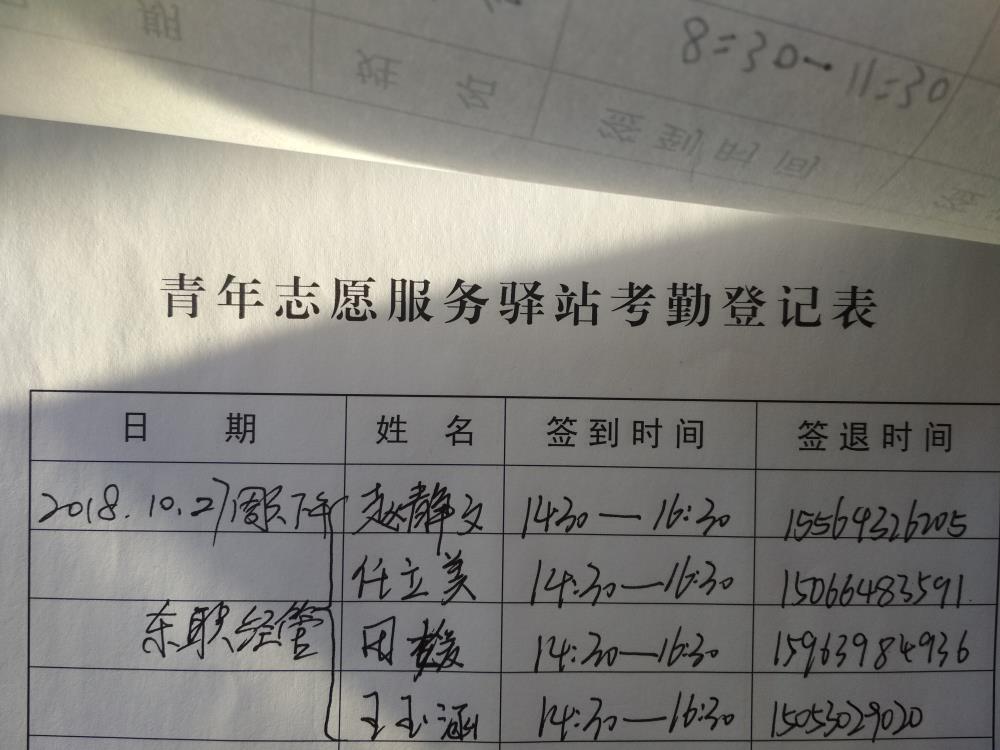 8:30-11:30
期 姓 名 签到时间
青年志愿服务驿站考勤登记表
日 期 姓 名 签到时间 签退时间
2018.10.27周六下午 赵静文 1430—16:30 15564326205
任立美 14:30—16:30 15066483591
东职经管 周媛 14:30—16:30 15963984936
王玉涵 14:30—16:30 15053029020